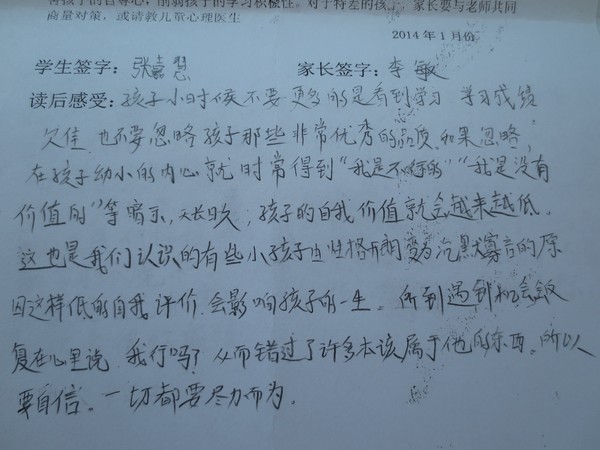 害孩子的自尊心，削弱孩子的学习积极性。对于特差的孩子，家长要与老师共同
商量对策，或请教儿童心理医生
2014年1月份
学生签字：张嘉慧 家长签字：李敏
读后感受：孩子小时侯不要更多的是看到学习 学习成绩
欠佳 也不要忽略孩子那些非常优秀的品质.如果忽略，
在孩子幼小的内心就时常得到“我是不好的”“我是没有
价值的”等暗示，天长日久，孩子的自我价值就会越来越低.
这也是我们认识的有些小孩子由性格开朗变为沉默寡言的原
因这样低的自我评价.会影响孩子的一生。所到遇到机会就
复在心里说 我行吗？从而错过了许多本该属于他的东西。所以
要自信。一切都要尽力而为。